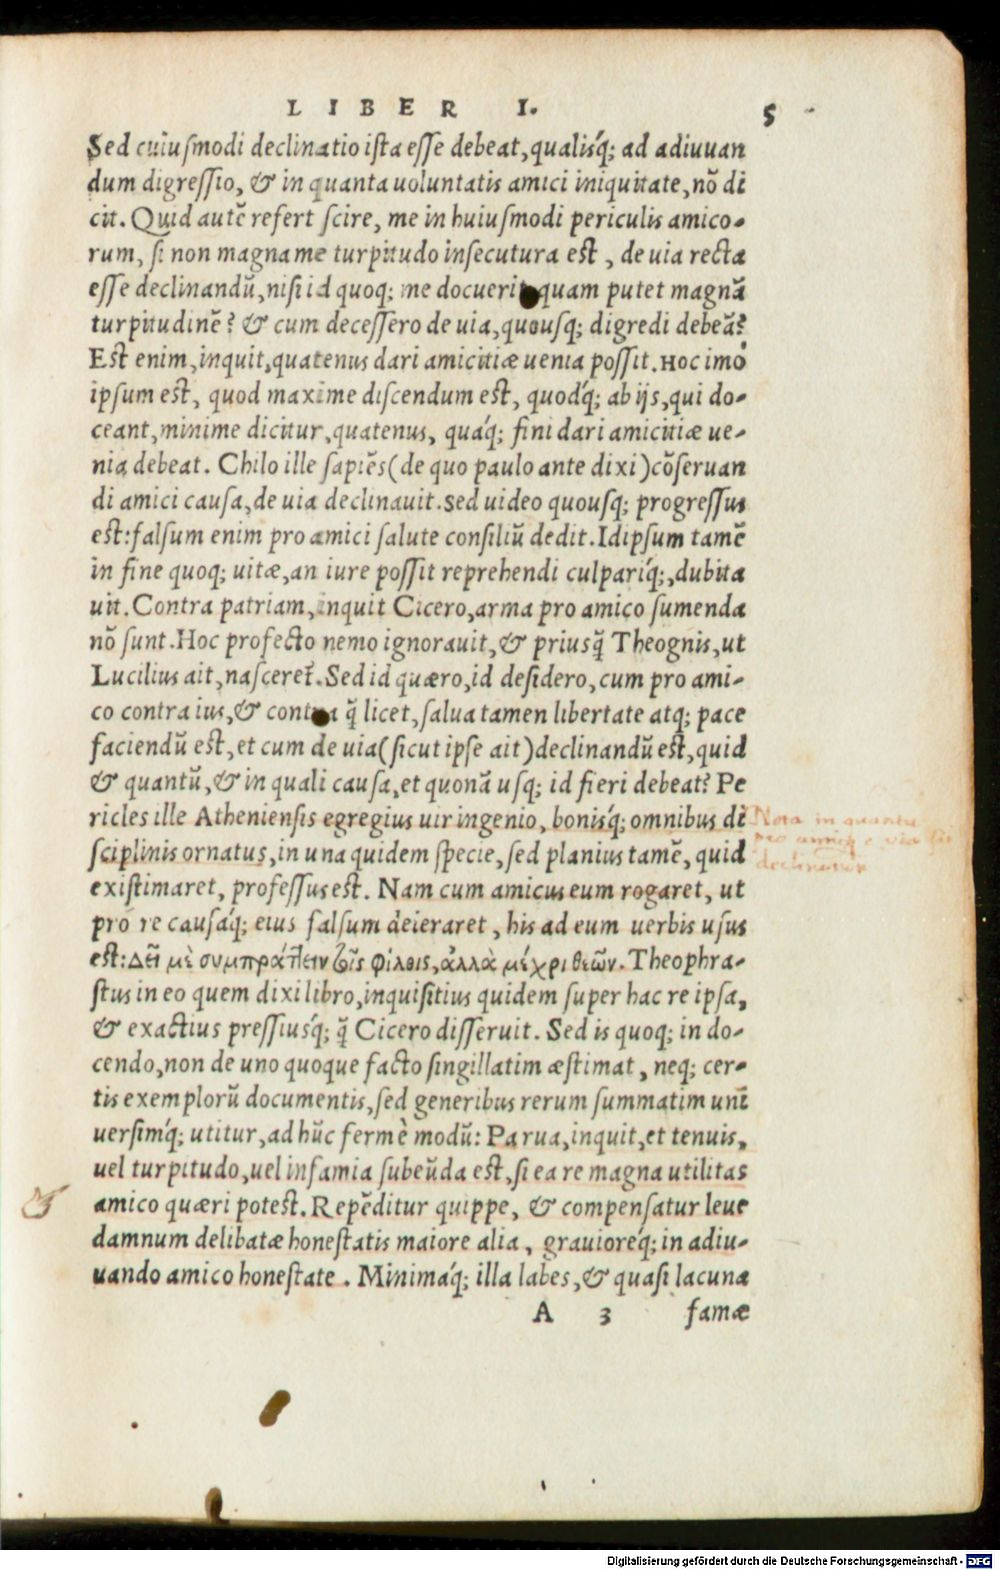 LIBER I. 5
Sed cuiusmodi declinatio ista esse debeat, qualisq́; ad adiuuan
dum digressio, & in quanta uoluntatis amici iniquitate, nõ di
cit. Quid autẽ refert scire, me in huiusmodi periculis amico-
rum, si non magna me turpitudo insecutura est, de uia recta
esse declinandũ, nisi id quoq; me docuerit quam putet magnã
turpitudinẽ? & cum decessero de uia, quousq; digredi debeã?
Est enim, inquit, quatenus dari amicitiæ uenia possit. Hoc imò
ipsum est, quod maxime discendum est, quodq́; ab ijs, qui do-
ceant, minime dicitur, quatenus, quaq́; fini dari amicitiæ ue-
nia debeat. Chilo ille sapiẽs (de quo paulo ante dixi) cõseruan
di amici causa, de uia declinauit. Sed uideo quousq; progressus
est: falsum enim pro amici salute consiliũ dedit. Id ipsum tamẽ
in fine quoq; uitæ, an iure possit reprehendi culpariq́;, dubita
uit. Contra patriam, inquit Cicero, arma pro amico sumenda
nõ sunt. Hoc profecto nemo ignorauit, & priusq̃ Theognis, ut
Lucilius ait, nasceret̃. Sed id quæro, id desidero, cum pro ami-
co contra ius, & contra q̃ licet, salua tamen libertate atq; pace
faciendũ est, et cum de uia (sicut ipse ait) declinandũ est, quid
& quantũ, & in quali causa, et quonã usq; id fieri debeat? Pe
ricles ille Atheniensis egregius uir ingenio, bonisq́; omnibus di
sciplinis ornatus, in una quidem specie, sed planius tamẽ, quid
existimaret, professus est. Nam cum amicus eum rogaret, ut
pro re causaq́; eius falsum deieraret, his ad eum uerbis usus
est: Δεῖ μὲ συμπράττειν τοῖς φίλοις, ἀλλὰ μέχρι θεῶν. Theophra-
stus in eo quem dixi libro, inquisitius quidem super hac re ipsa,
& exactius pressiusq́; q̃ Cicero disseruit. Sed is quoq; in do-
cendo, non de uno quoque facto singillatim æstimat, neq; cer-
tis exemplorũ documentis, sed generibus rerum summatim uni
uersimq́; utitur, ad hũc fermè modũ: Parua, inquit, et tenuis,
uel turpitudo, uel infamia subeũda est, si ea re magna utilitas
amico quæri potest. Repẽditur quippe, & compensatur leue
damnum delibatæ honestatis maiore alia, grauioreq́; in adiu-
uando amico honestate. Minimaq́; illa labes, & quasi lacuna
A 3 famæ
Nota in quantu
pro amico e via
declinatur
Digitalisierung gefördert durch die Deutsche Forschungsgemeinschaft - DFG